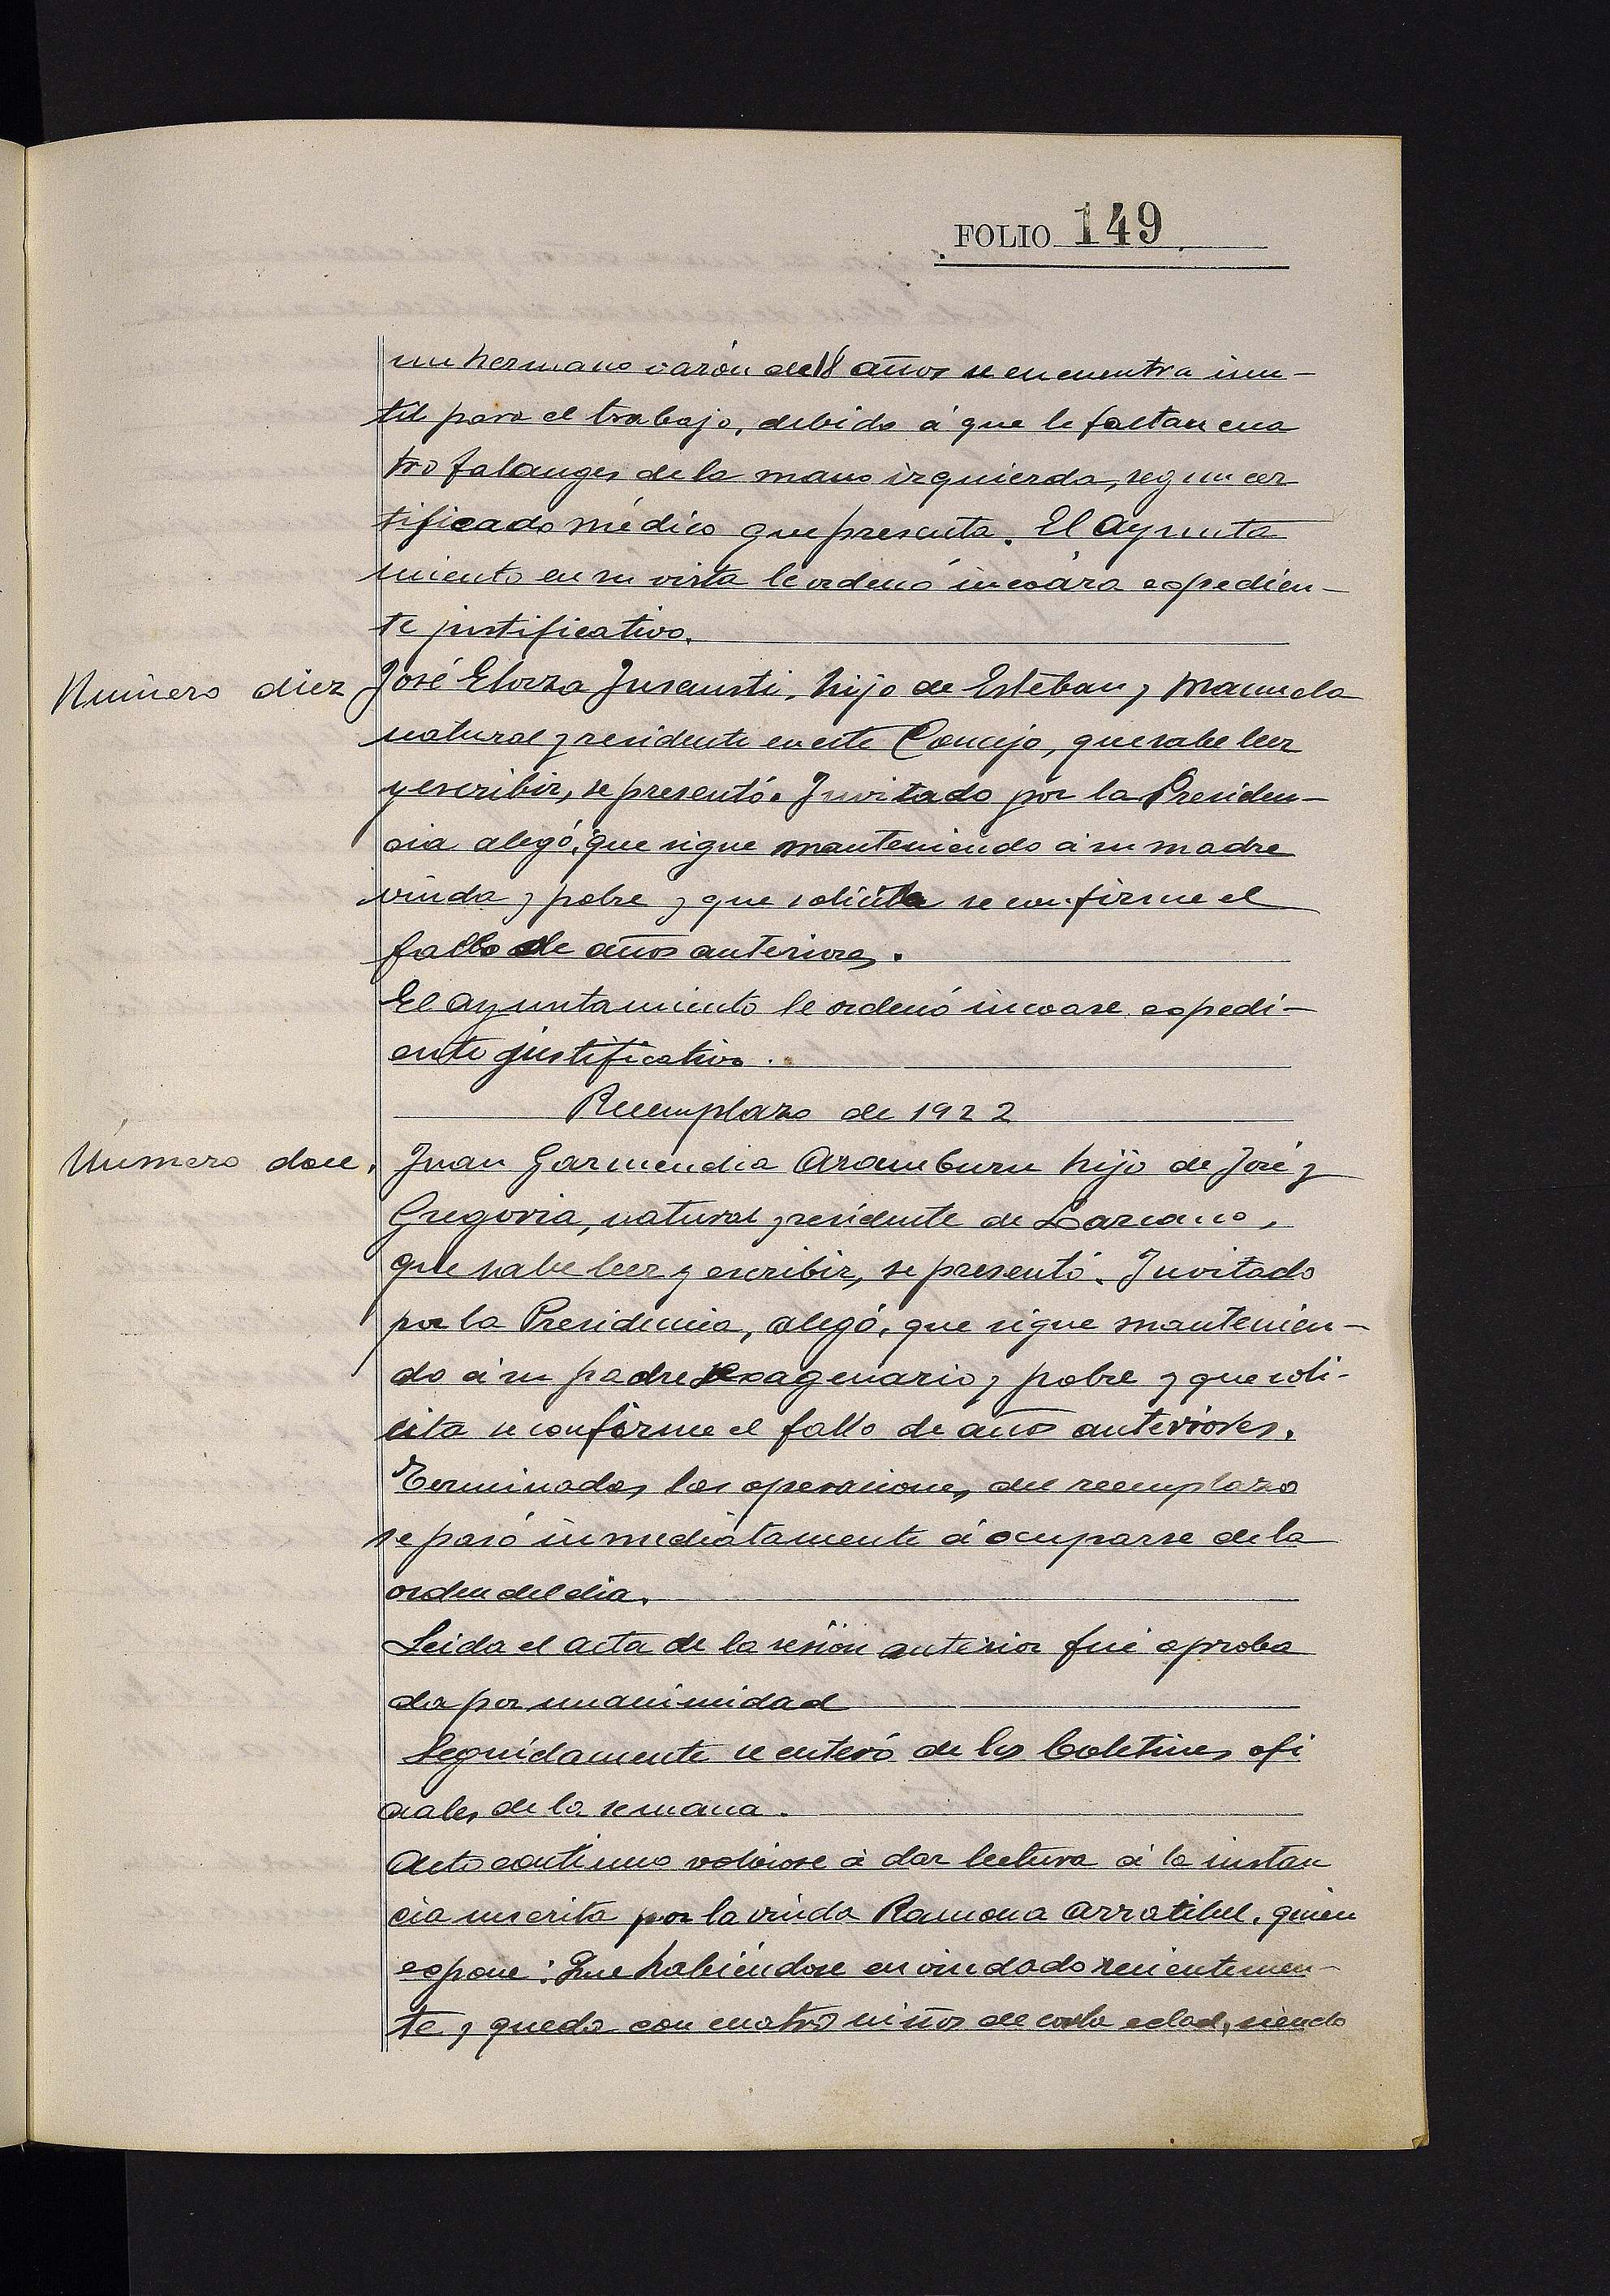 FOLIO 149
un hermano varón de 18 años se encuentra inu-
til para el trabajo, debido á que le faltan cua
tro falanges de la mano izquierda, segun cer
tificado médico que presenta. El Ayunta
miento en su vista le ordenó incoara expedien-
te justificativo.
Número diez José Elorza Insausti, hijo de Esteban y Manuela
natural y residente en este Concejo, que sabe leer
y escribir, se presentó. Invitado por la Presiden-
cia alegó, que sigue manteniendo á su madre
viuda y pobre y que solicita se confirme el
fallo de años anteriores.
El Ayuntamiento le ordenó incoase expedi-
ente justificativo.
Reemplazo de 1922
Número doce. Juan Garmendia Aramburu hijo de José y
Gregoria, natural y residente de Lazcano,
que sabe leer y escribir, se presentó. Invitado
por la Presidencia, alegó, que sigue mantenien-
do á su padre sexagenario y pobre y que soli-
cita se confirme el fallo de años anteriores.
Terminadas las operaciones del reemplazo
se pasó inmediatamente á ocuparse de la
orden del dia.
Leida el acta de la sesión anterior fué aproba
da por unanimidad
Seguidamente se enteró de los boletines ofi
ciales de la semana.
Acto continuo volviose á dar lectura á la instan
cia suscrita por la viuda Ramona Arratibel, quien
expone: Que habiéndose enviudado recientemen-
te y queda con cuatro niños de corta edad, siendo